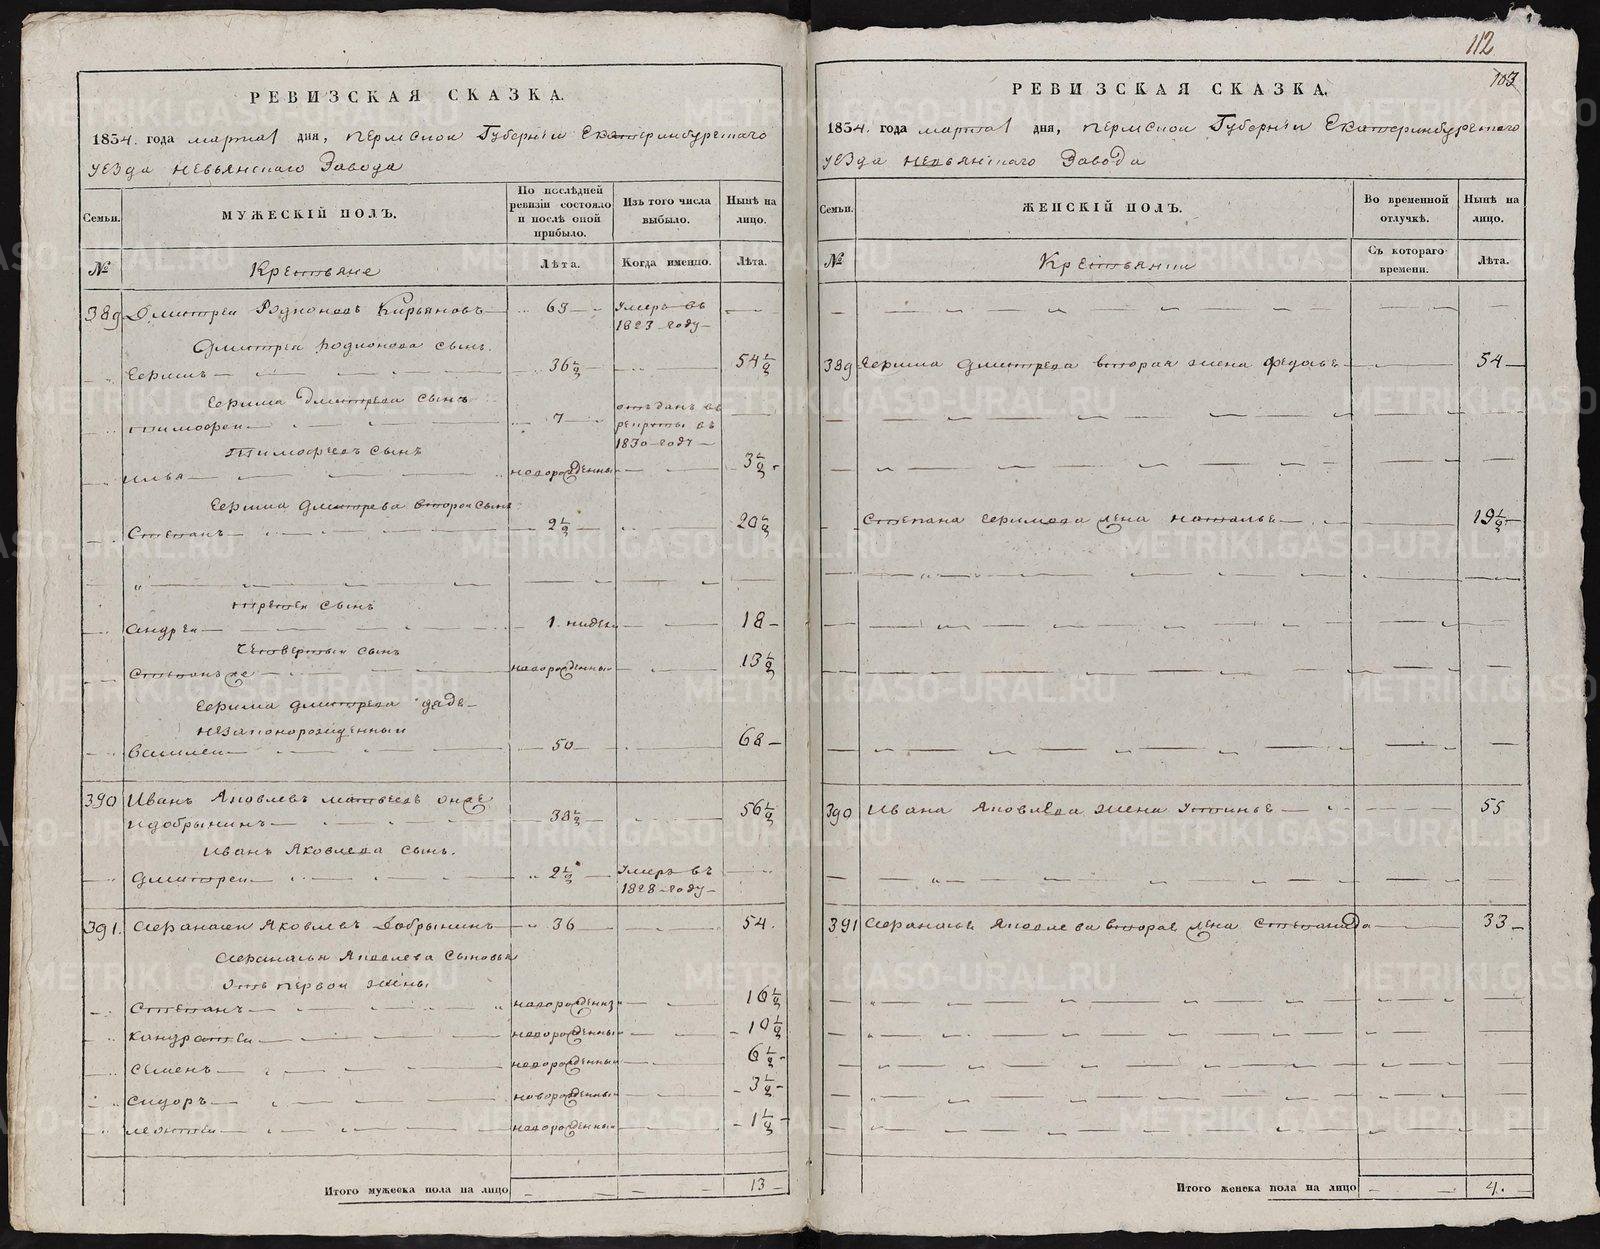 РЕВИЗСКАЯ СКАЗКА.
1834. года марта 1 дня, Пермской Губернии Екатеринбургского
уезда Невьянского Завода
Семьи.
МУЖЕСКІЙ ПОЛЪ.
По послѣдней ревизіи состояло и послѣ оной прибыло.
Изъ того числа выбыло.
Нынѣ на лицо.
№
Крестьяне
Лѣта.
Когда именно.
Лѣта.
389 Дмитреи Родионовъ Кирьяновъ 69 Умеръ въ
1823 году
Дмитрея Родионова сынъ.
Еѳимъ 36½ 54½
Еѳима Дмитрева сынъ
Тимоѳеи 7 отъданъ въ
рекруты въ
1830 году
Тимоѳеевъ сынъ
Илья новорожденный 3½
Еѳима Дмитрева второй сынъ
Степанъ 2½ 20½
третеи сынъ
Андреи 1. недели 18
Четвертыи сынъ
Степанъ же новорожденный 13½
Еѳима Дмитрева дядя
незаконорожденный
Василеи 50 68
390 Иванъ Яковлевъ Матвеевъ онже
и Добрынинъ 38½ 56½
Иванъ Яковлева сынъ.
Дмитреи 2½ Умеръ въ
1828 году
391. Аѳанасеи Яковлевъ Добрынинъ 36 54.
Аѳанасья Яковлева сыновья
отъ первой жены
Степанъ новорожденный 16½
Кандратеи новорожденный 10½
Семенъ новорожденный 6½
Сидоръ новорожденный 3½
Леонтеи новорожденный 1½
Итого мужеска пола на лицо 13
112
103
РЕВИЗСКАЯ СКАЗКА.
1834. года марта 1 дня, Пермской Губернии Екатеринбургского
уезда Невьянского Завода
Семьи.
ЖЕНСКІЙ ПОЛЪ.
Во временной отлучкѣ.
Нынѣ на лицо.
№
Крестьянки
Съ котораго времени.
Лѣта.
389 Еѳима Дмитрева вторая жена Ѳедосья 54
Степана Еѳимова жена Наталья 19½
390 Ивана Яковлева жена Устинья 55
391 Аѳанасья Яковлева вторая жена Степанида 33
Итого женска пола на лицо 4.
METRIKI.GASO-URAL.RU